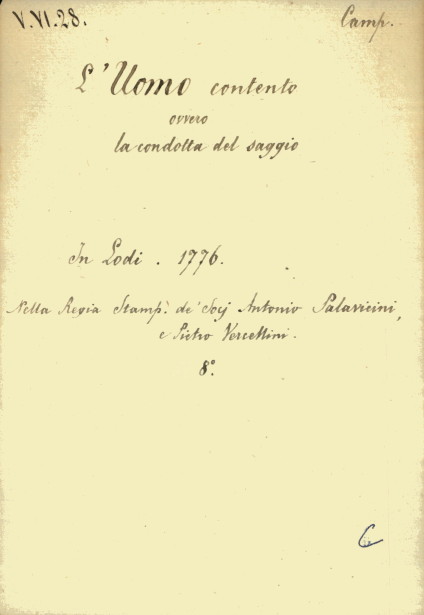 V.VI.28. Camp.
L'Uomo contento
ovvero
la condotta del saggio
In Lodi. 1776.
Nella Regia Stamp.ª de' Socj Antonio Palavicini,
e Pietro Vercellini.
8°.
C